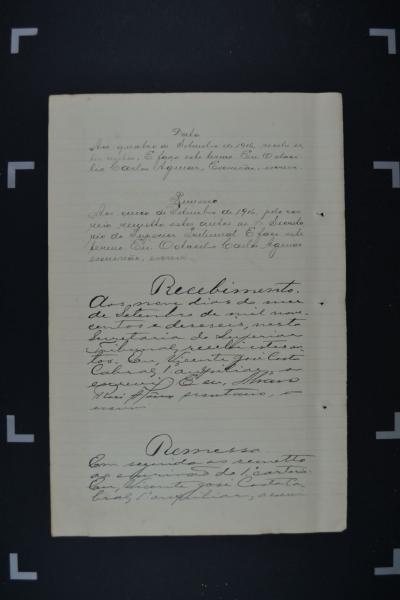 Data
Aos quatro de Setembro de 1916, recebi es
tes autos. E faço este termo. Eu Octaci
lio Carlos Aguiar, Escrivão, escrevi.
Remessa
Aos cinco de Setembro de 1916, pelo cor
reio remetto estes autos ao Secreta
rio do Superior Tribunal. E faço este
termo. Eu Octacilio Carlos Aguiar
escrivão, escrevi.
Recebimento.
Aos nove dias do mez
de Setembro de mil nove-
centos e dezeseis, nesta
Secretaria do Superior
Tribunal, recebi estes au-
tos. Eu, Vicente José Costa
Cabral, 1º auxiliar, o
escrevi. E eu,
secretario, o
Remessa
Em seguida os remetto
ao escrivão do 1º cartorio.
Eu, Vicente José Costa Ca
bral, 1º auxiliar, escrevi